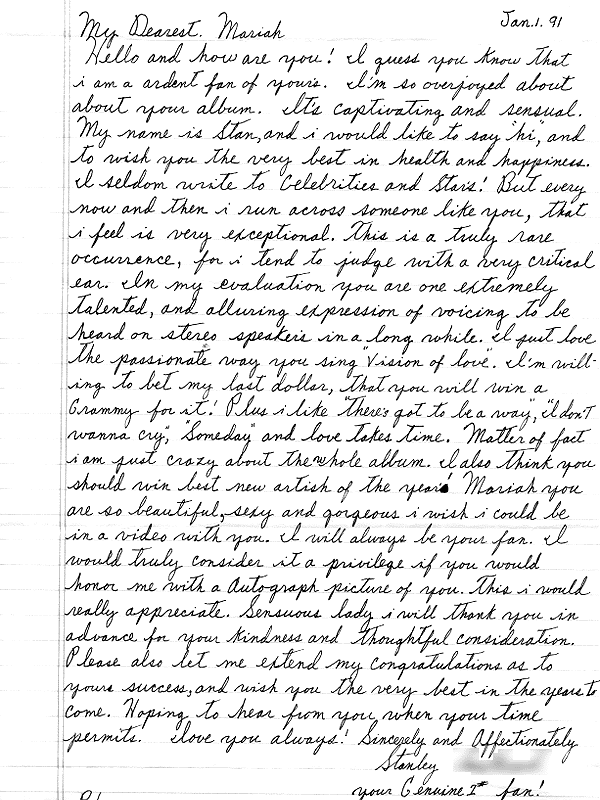 Jan. 1. 91
My Dearest. Mariah
Hello and how are you! I guess you know that
i am a ardent fan of yours. I'm so overjoyed about
about your album. It's captivating and sensual.
My name is Stan, and i would like to say "hi", and
to wish you the very best in health and happiness.
I seldom write to Celebrities and Stars! But every
now and then i run across someone like you, that
i feel is very exceptional. This is a truly rare
occurrence, for i tend to judge with a very critical
ear. In my evaluation you are one extremely
talented, and alluring expression of voicing to be
heard on stereo speakers in a long while. I just love
the passionate way you sing "Vision of love". I'm will-
ing to bet my last dollar, that you will win a
Grammy for it! Plus i like "There's got to be a way", "I don't
wanna cry", "Someday" and love takes time. Matter of fact
i am just crazy about the whole album. I also think you
should win best new artish of the year! Mariah you
are so beautiful, sexy and gorgeous i wish i could be
in a video with you. I will always be your fan. I
would truly consider it a privilege if you would
honor me with a Autograph picture of you. This i would
really appreciate. Sensuous lady i will thank you in
advance for your kindness and thoughtful consideration.
Please also let me extend my congratulations as to
yours success, and wish you the very best in the years to
come. Hoping to hear from you, when your time
permits. I love you always! Sincerely and Affectionately
Stanley
your Genuine 1st fan!
91